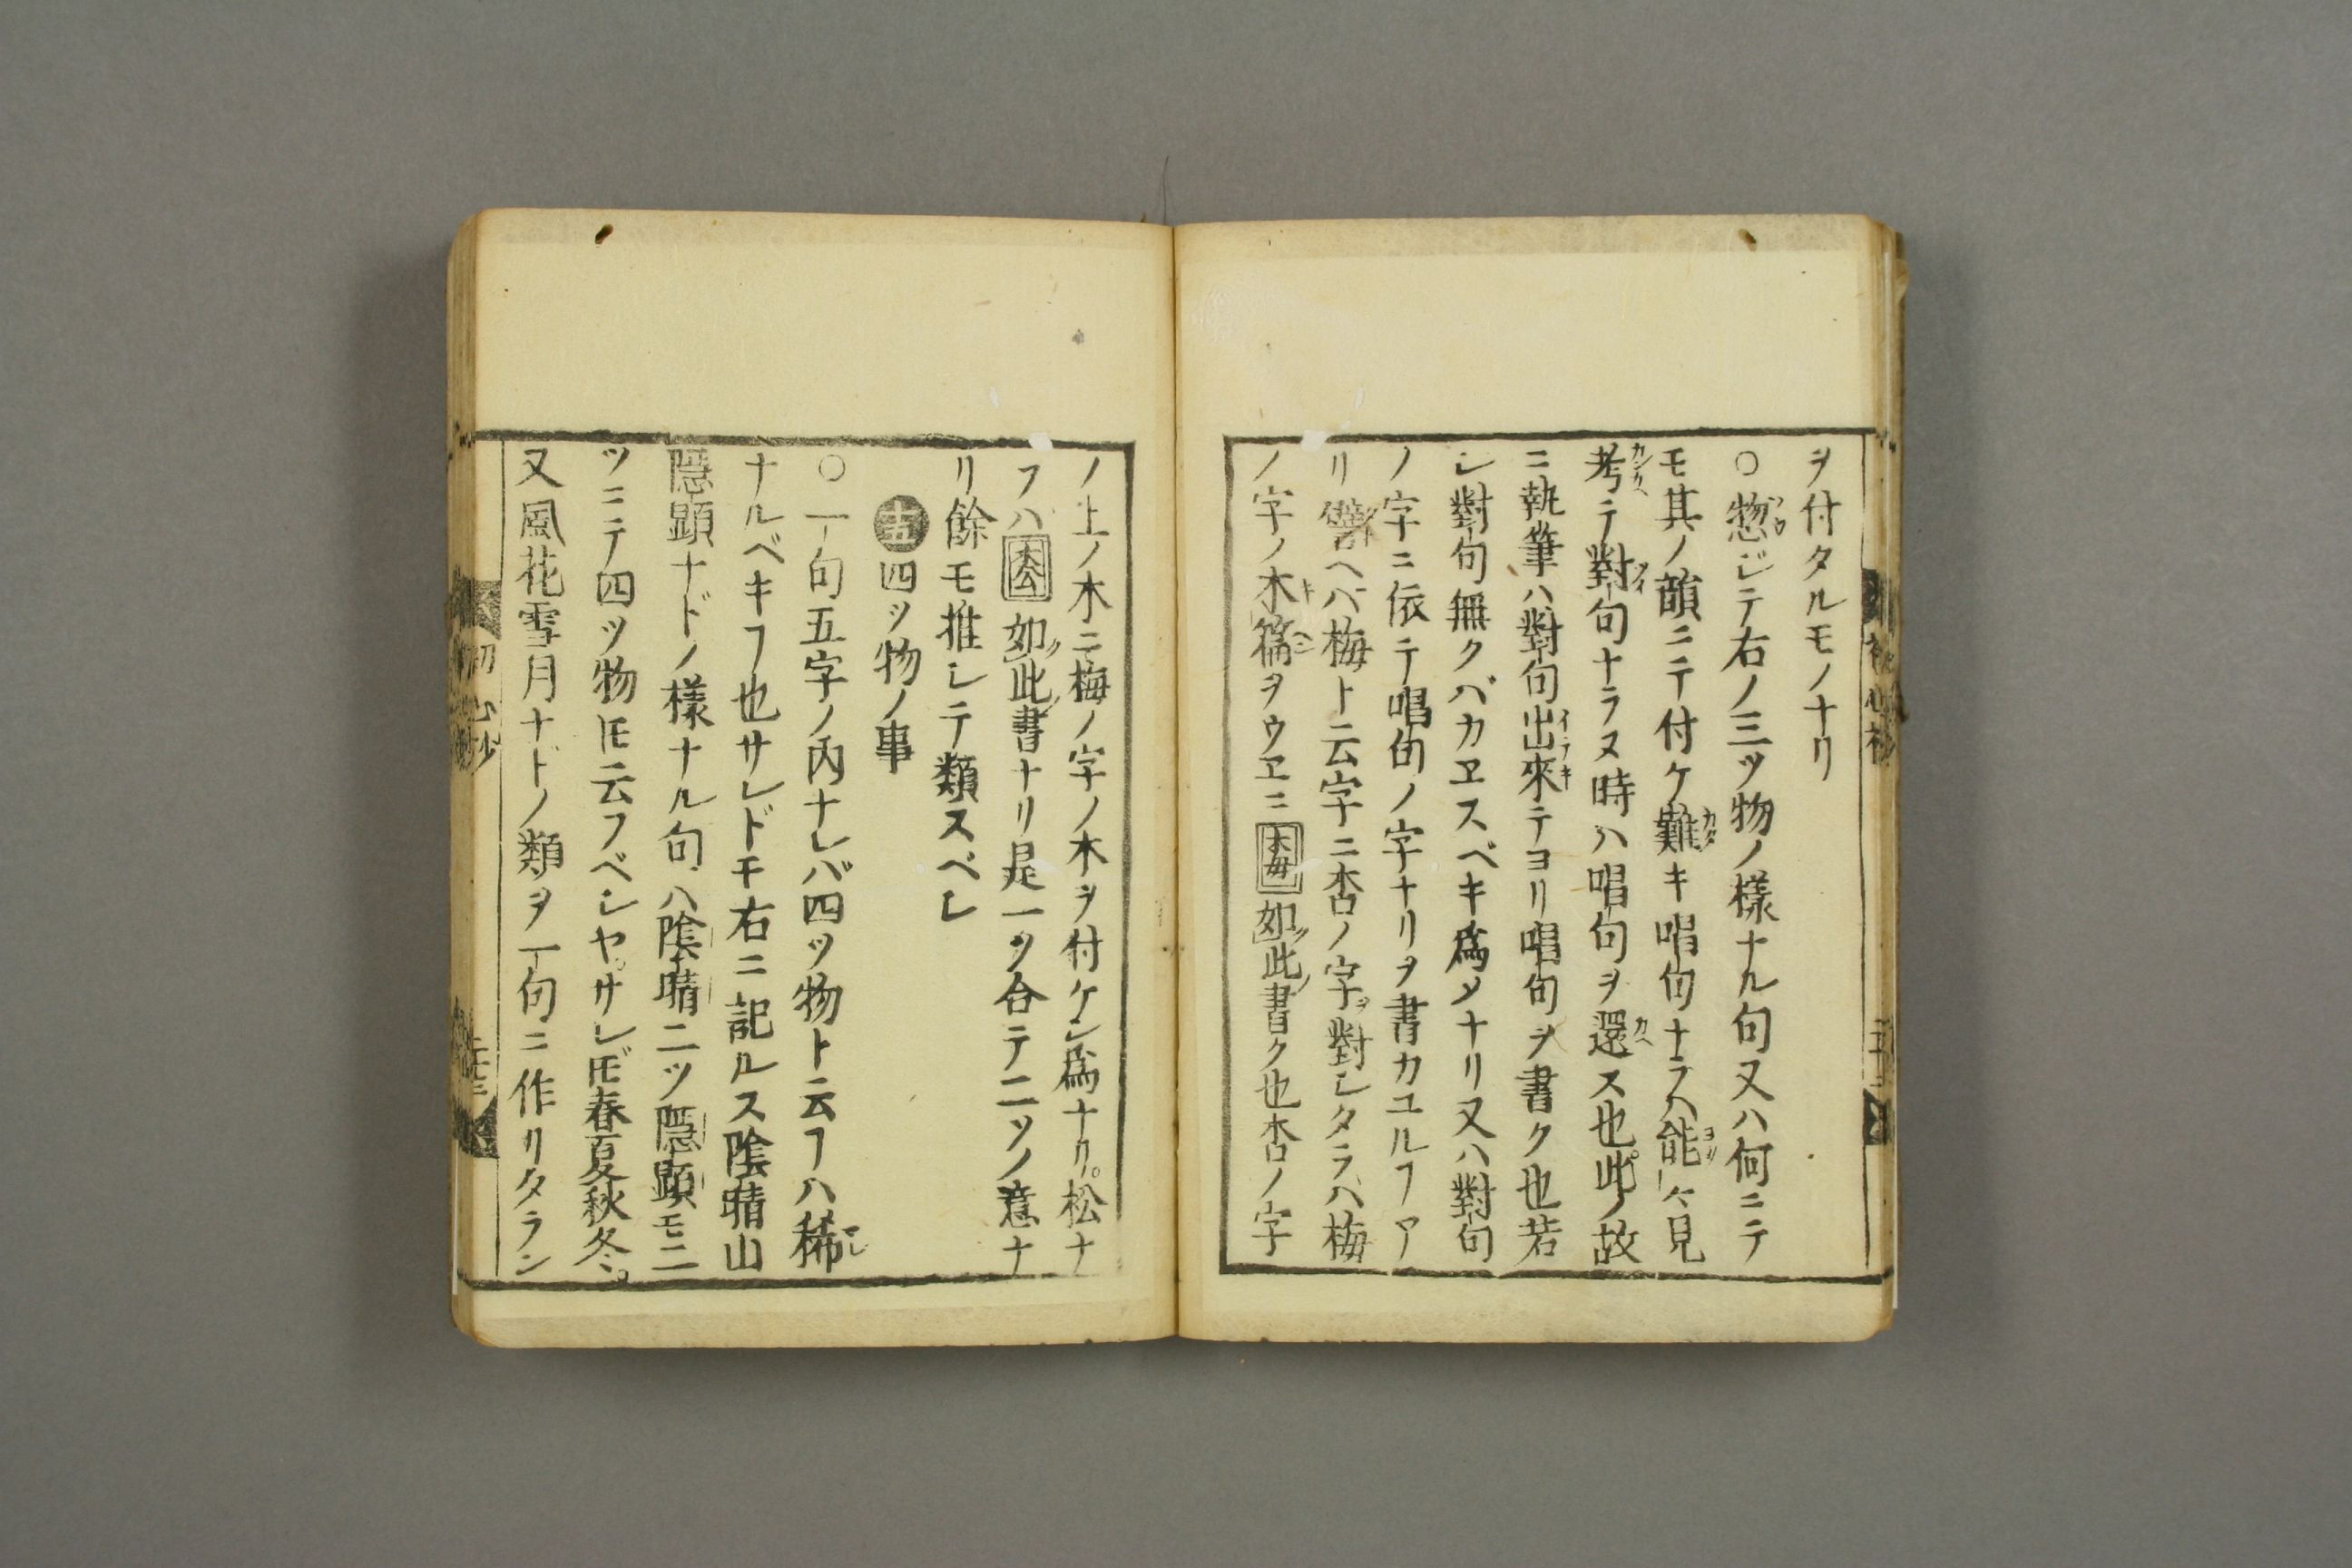 ヲ付タルモノナリ
○惣ジテ右ノ三ツ物ノ樣ナル句又ハ何ニテ
モ其ノ韻ニテ付ケ難キ唱句ナラハ能ク々見
考テ對句ナラヌ時ハ唱句ヲ還ス也此ノ故
ニ執筆ハ對句出來テヨリ唱句ヲ書ク也若
シ對句無クバカヱスベキ爲メナリ又ハ對句
ノ字ニ依テ唱句ノ字ナリヲ書カユルヿア
リ譬ヘバ梅ト云字ニ杏ノ字ヲ對シタラハ梅
ノ字ノ木篇ヲウヱニ如此書ク也杏ノ字
ノ上ノ木ニ梅ノ字ノ木ヲ付ケン爲ナリ。松ナ
フハ如此書ナリ是一ツ合テ二ツノ意ナ
リ餘モ推シテ類スベシ
十五四ツ物ノ事
○一句五字ノ内ナレバ四ツ物ト云フハ稀
ナルベキヿ也サレドモ右ニ記ルス陰晴山
隱顕ナドノ樣ナル句ハ陰晴二ツ隱顕モ二
ツニテ四ツ物𪜈云フベシヤ。サレ𪜈春夏秋冬。
又風花雪月ナドノ類ヲ一句ニ作リタラン